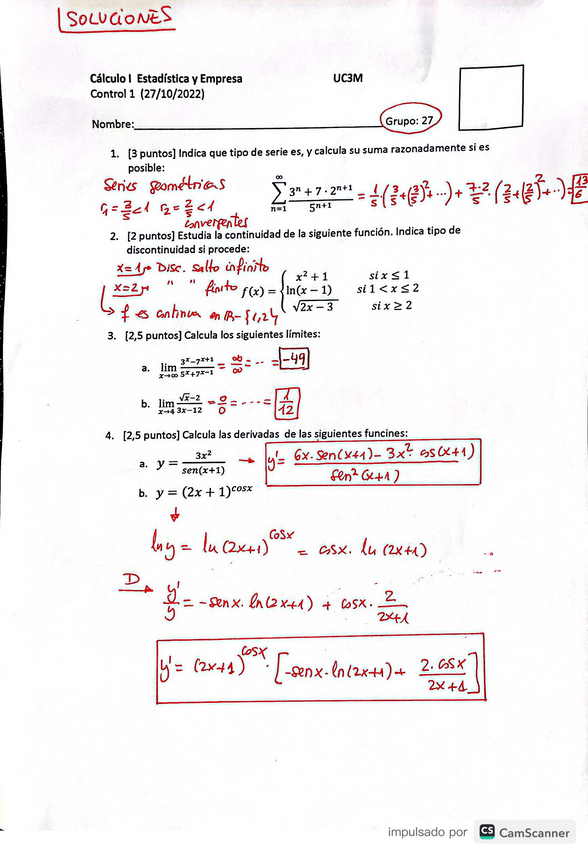 SOLUCIONES
Cálculo I Estadística y Empresa UC3M
Control 1 (27/10/2022)
Nombre:____________ Grupo: 27
1. [3 puntos] Indica que tipo de serie es, y calcula su suma razonadamente si es
posible:
Series geométricas
r₁ = 3/5 < 1 r₂ = 2/5 < 1
convergentes
∑_{n=1}^{∞} (3^n + 7·2^{n+1})/5^{n+1} = 1/5·(3/5+(3/5)²+···) + 7·2/5·(2/5+(2/5)²+··) = 13/6
2. [2 puntos] Estudia la continuidad de la siguiente función. Indica tipo de
discontinuidad si procede:
x=1 → Disc. Salto infinito
x=2 → " " finito
↳ f es continua en R-{1,2}
f(x) = { x² + 1 si x ≤ 1
ln(x − 1) si 1 < x ≤ 2
√(2x − 3) si x ≥ 2
3. [2,5 puntos] Calcula los siguientes límites:
a. lim_{x→∞} (3^x − 7^{x+1})/(5^x + 7^{x−1}) = ∞/∞ = ·· = -49
b. lim_{x→4} (√x − 2)/(3x − 12) = 0/0 = ···· = 1/12
4. [2,5 puntos] Calcula las derivadas de las siguientes funcines:
a. y = 3x²/sen(x+1) → y' = (6x·sen(x+1) − 3x²·cos(x+1))/sen²(x+1)
b. y = (2x + 1)^{cosx}
↓
ln y = ln (2x+1)^{cosx} = cosx · ln (2x+1)
D → y'/y = -senx · ln(2x+1) + cosx · 2/(2x+1)
y' = (2x+1)^{cosx} · [-senx · ln(2x+1) + 2·cosx/(2x+1)]
impulsado por CS CamScanner